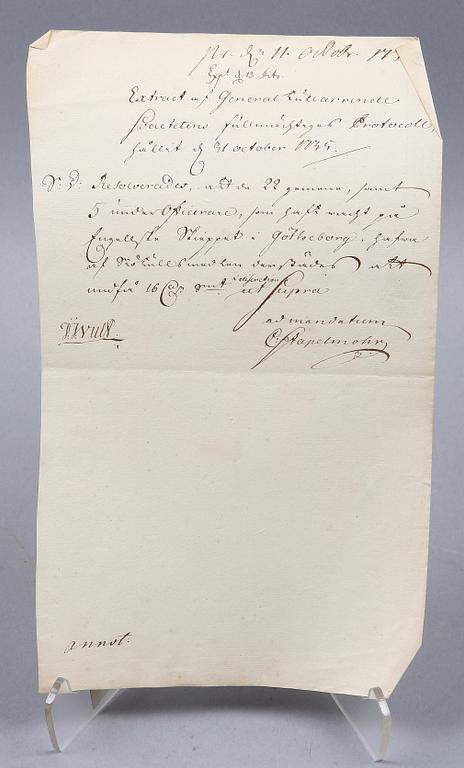 Pr. d: 11 octobr. 173
Exp. d 13 dito.
Extract af General Tullarrende
Societetens fullmächtiges Protocoll,
hållit d 31 october 1735.
S: D: Resolverades, att de 22 gemene, samt
5 under Officerare, som haft wacht på
Engellske Skieppet i Götheborg, hafwa
af Siötullsmedlen derstädes att
undfå 16 smt i discretion ut Supra
ad mandatum
C: Stapelmohr
annot: